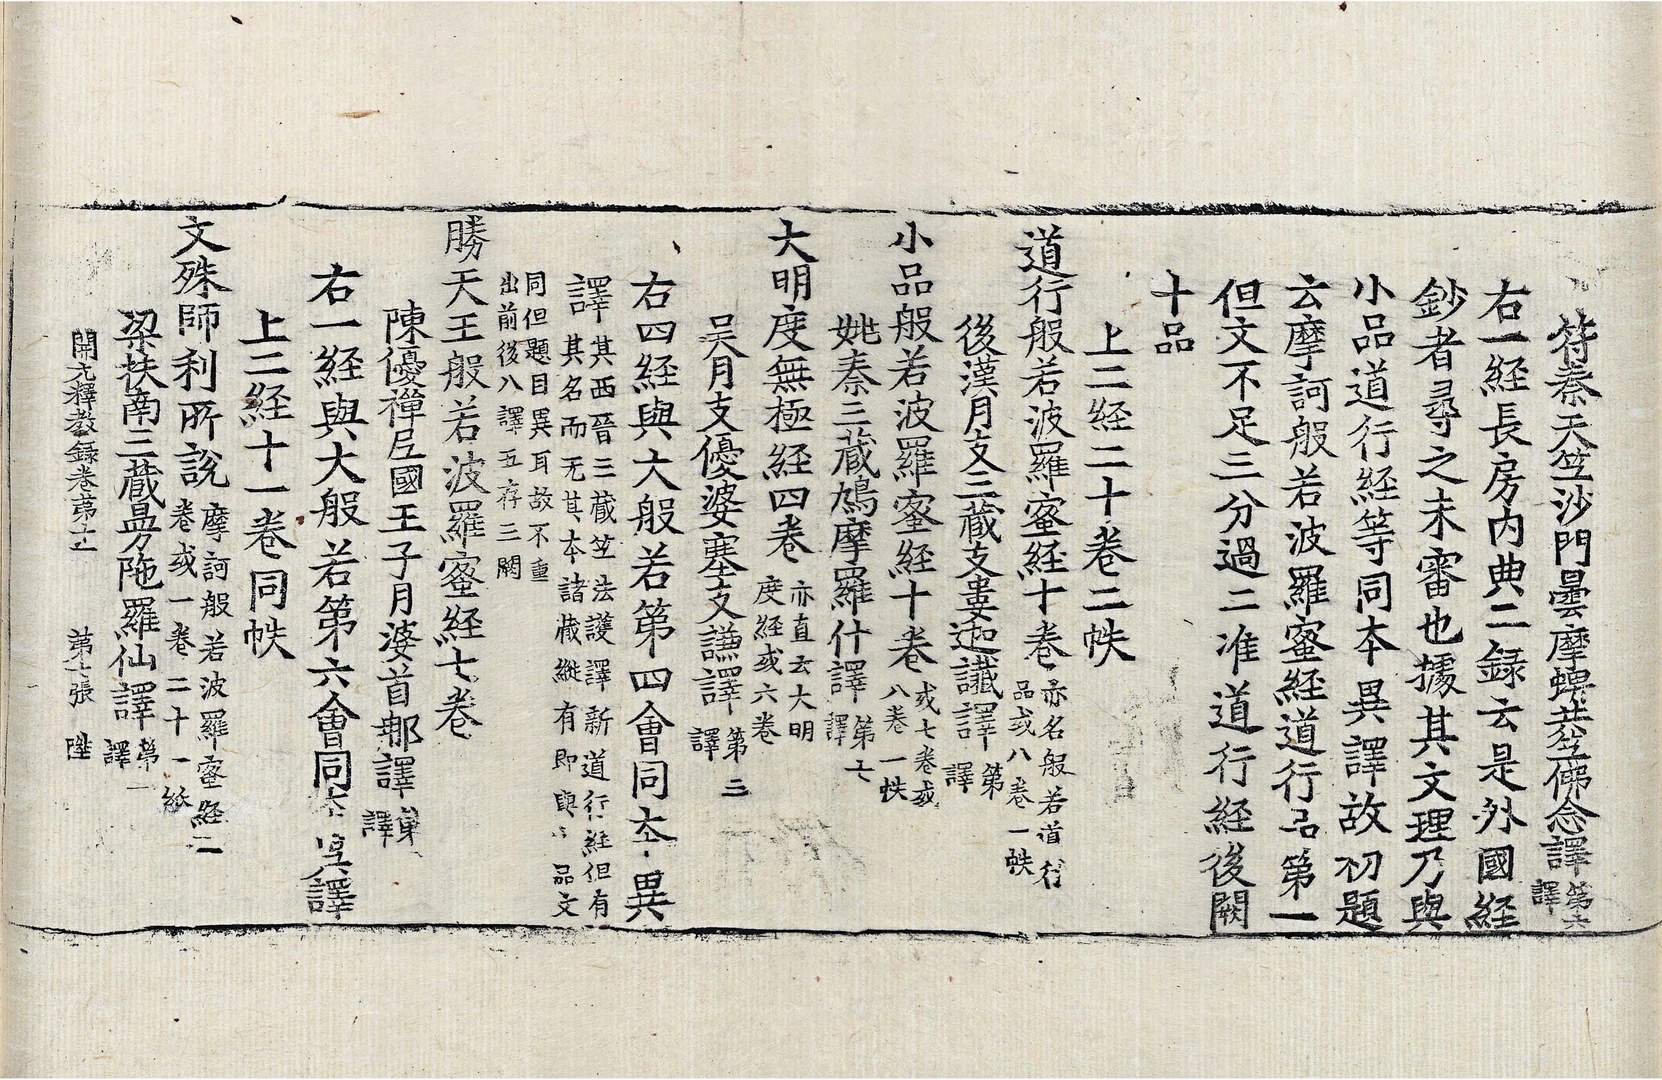 符秦天竺沙門曇摩蜱共竺佛念譯第六譯
右一經長房内典二録云是外國經
鈔者尋之未審也據其文理乃與
小品道行經等同本異譯故初題
云摩訶般若波羅蜜經道行品第一
但文不足三分過二准道行經後闕
十品
上二經二十卷二帙
道行般若波羅蜜經十卷亦名般若道行品或八卷一帙
後漢月支三藏支婁迦讖譯第譯
小品般若波羅蜜經十卷或七卷或八卷一帙
姚秦三藏鳩摩羅什譯第七譯
大明度無極經四卷亦直云大明度經或六卷
吴月支優婆塞支謙譯第三譯
右四經與大般若第四會同本異
譯其西晉三藏竺法護譯新道行經但有其名而无其本諸藏縱有即與品文
同但題目異耳故不重出前後八譯五存三闕
勝天王般若波羅蜜經七卷
陳優禪尼國王子月婆首那譯第譯
右一經與大般若第六會同本異譯
上二經十一卷同帙
文殊師利所說摩訶般若波羅蜜經二卷或一卷二十一紙
梁扶南三藏曼陁羅仙譯第一譯
開元釋教録卷第十二 第七張 陞